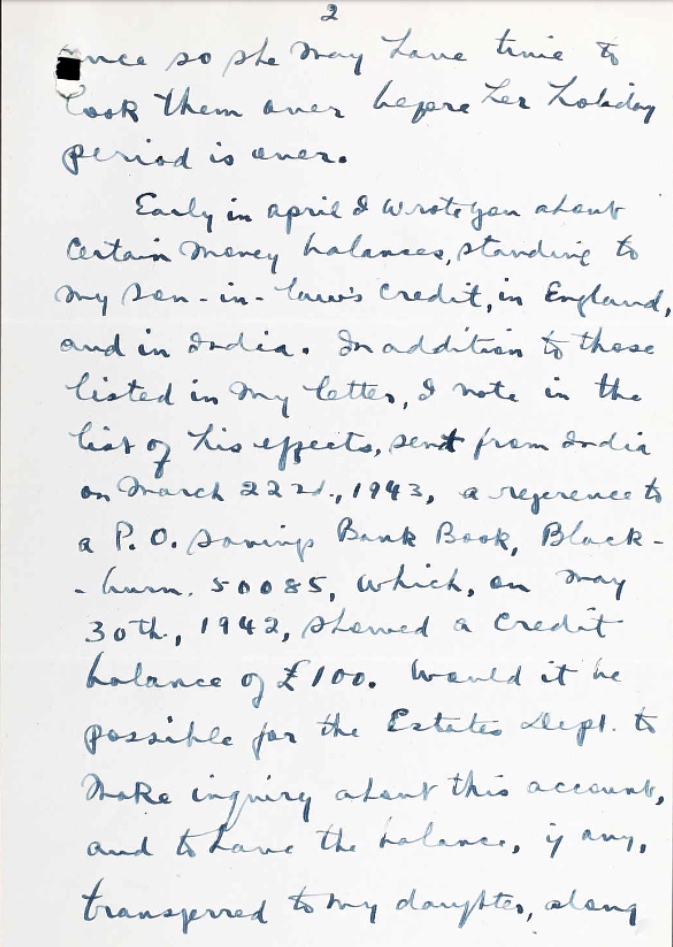 2
once so she may have time to
look them over before her holiday
period is over.
Early in april I wrote you about
certain money balances, standing to
my son-in-law's credit, in England,
and in India. In addition to those
listed in my letter, I note in the
list of his effects, sent from India
on March 22nd., 1943, a reference to
a P.O. Savings Bank Book, Black-
-burn. 50085, which, on May
30th., 1942, showed a credit
balance of £100. Would it be
possible for the Estates Dept. to
make inquiry about this account,
and to have the balance, if any,
transferred to my daughter, along